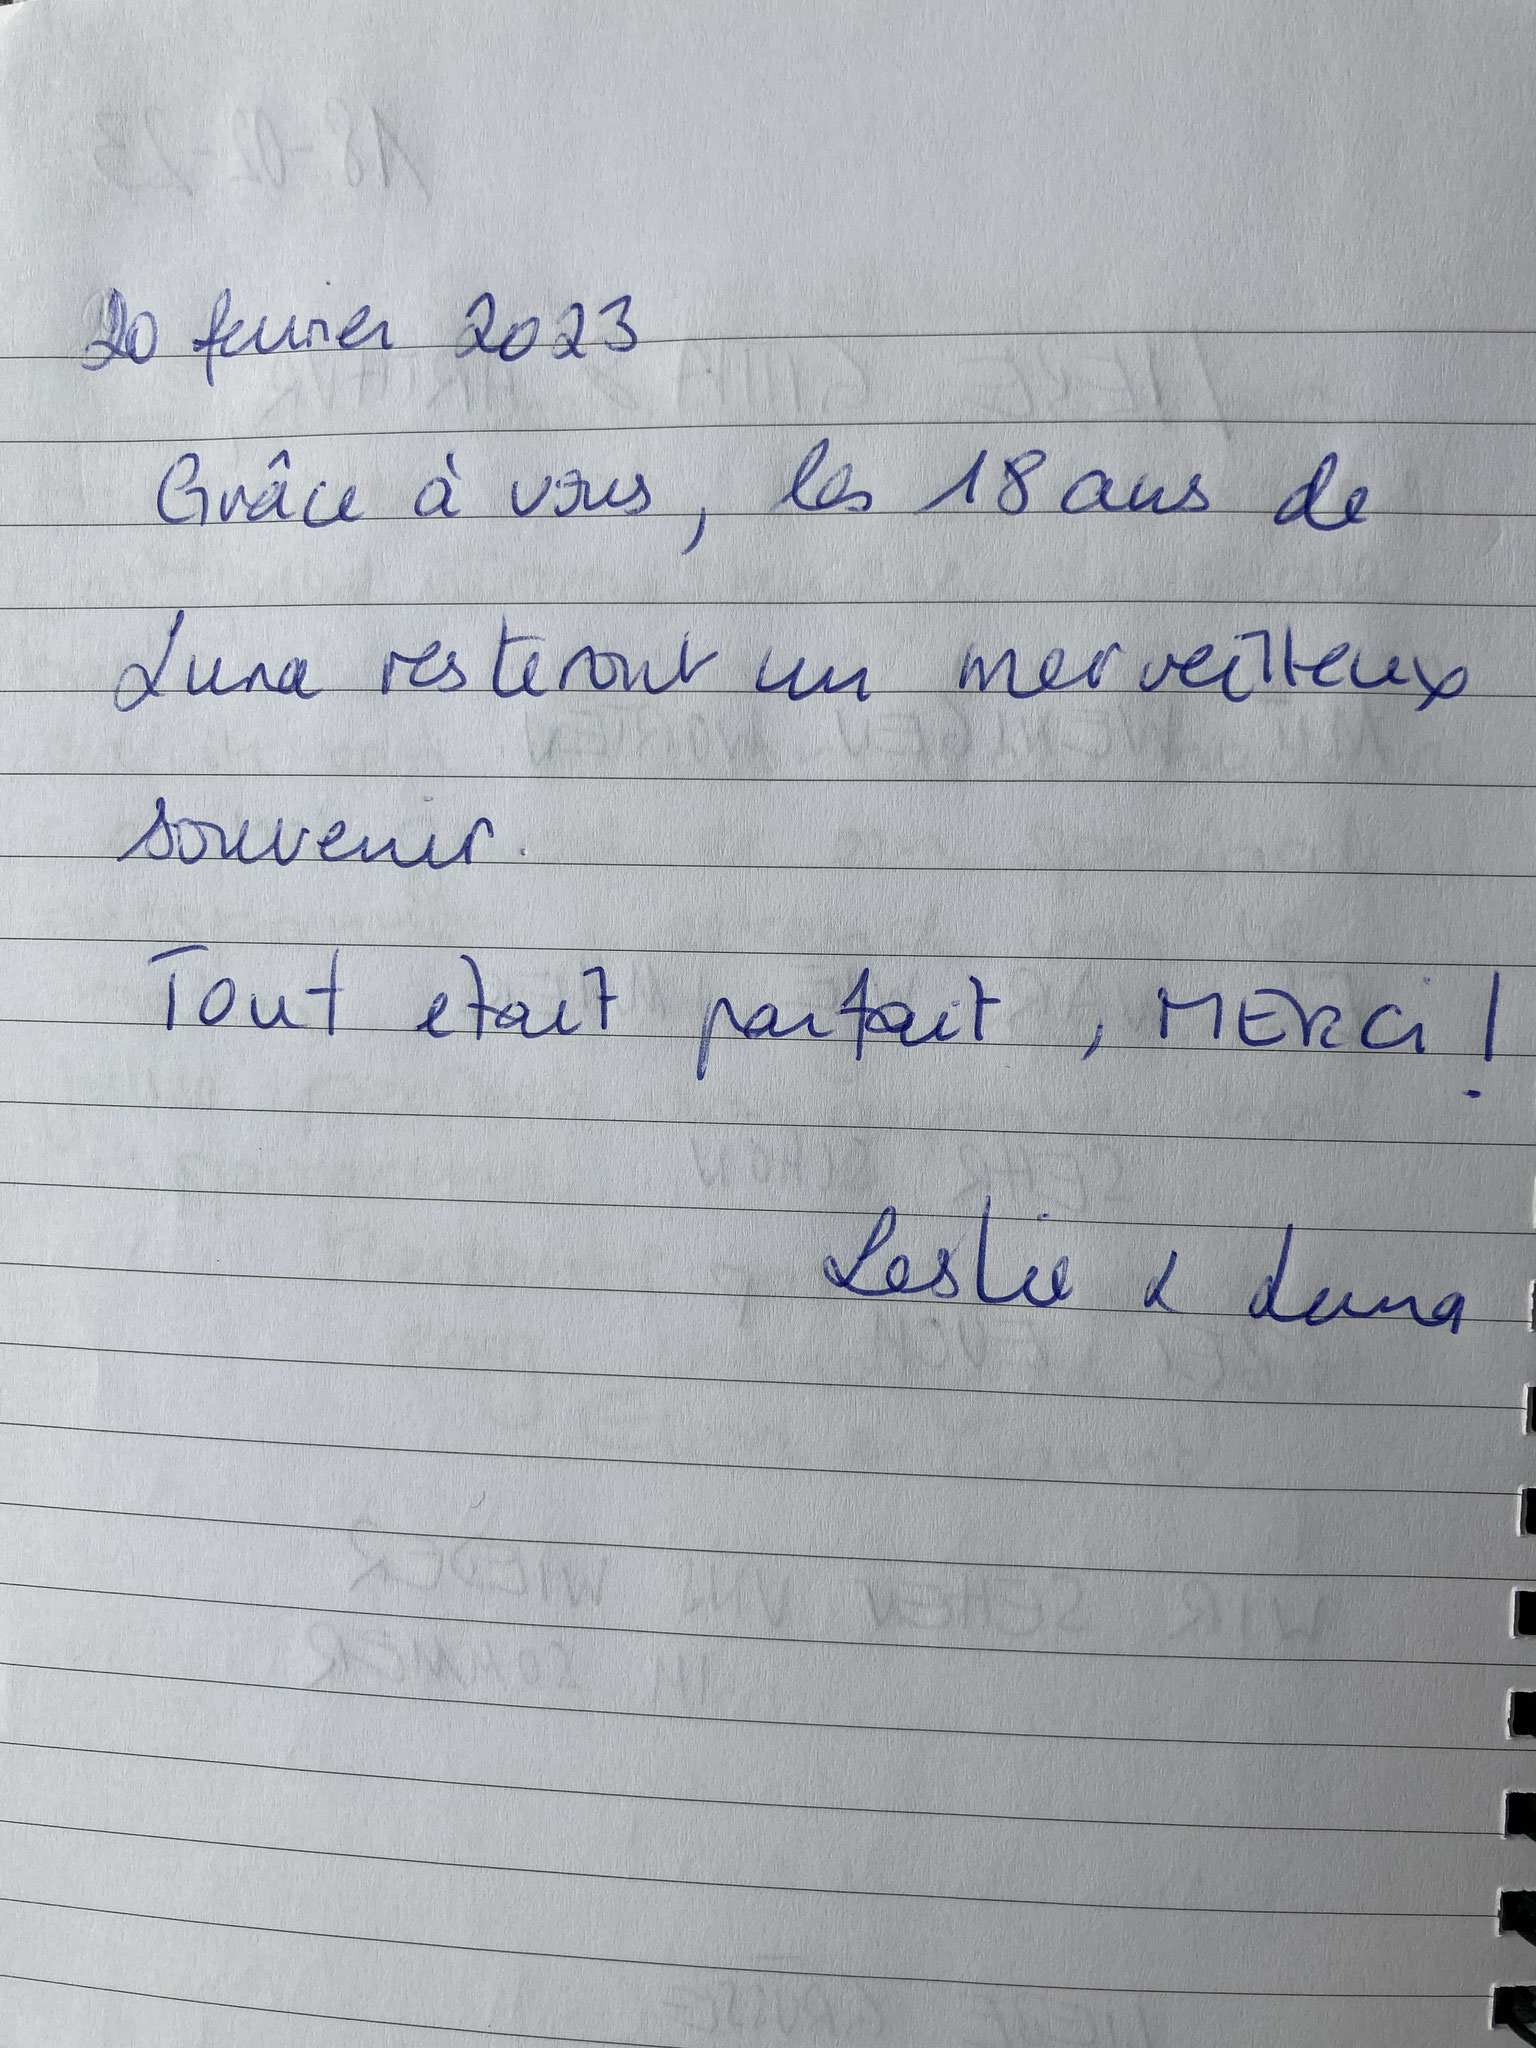 20 fevrier 2023
Grâce à vous, les 18 ans de
Luna resteront un merveilleux
souvenir.
Tout etait parfait, MERCi !
Leslie & Luna